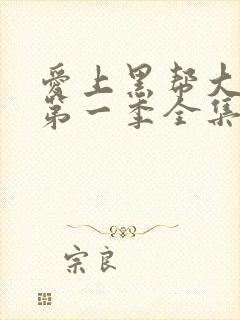 爱上黑帮大
第一季全集
宗良